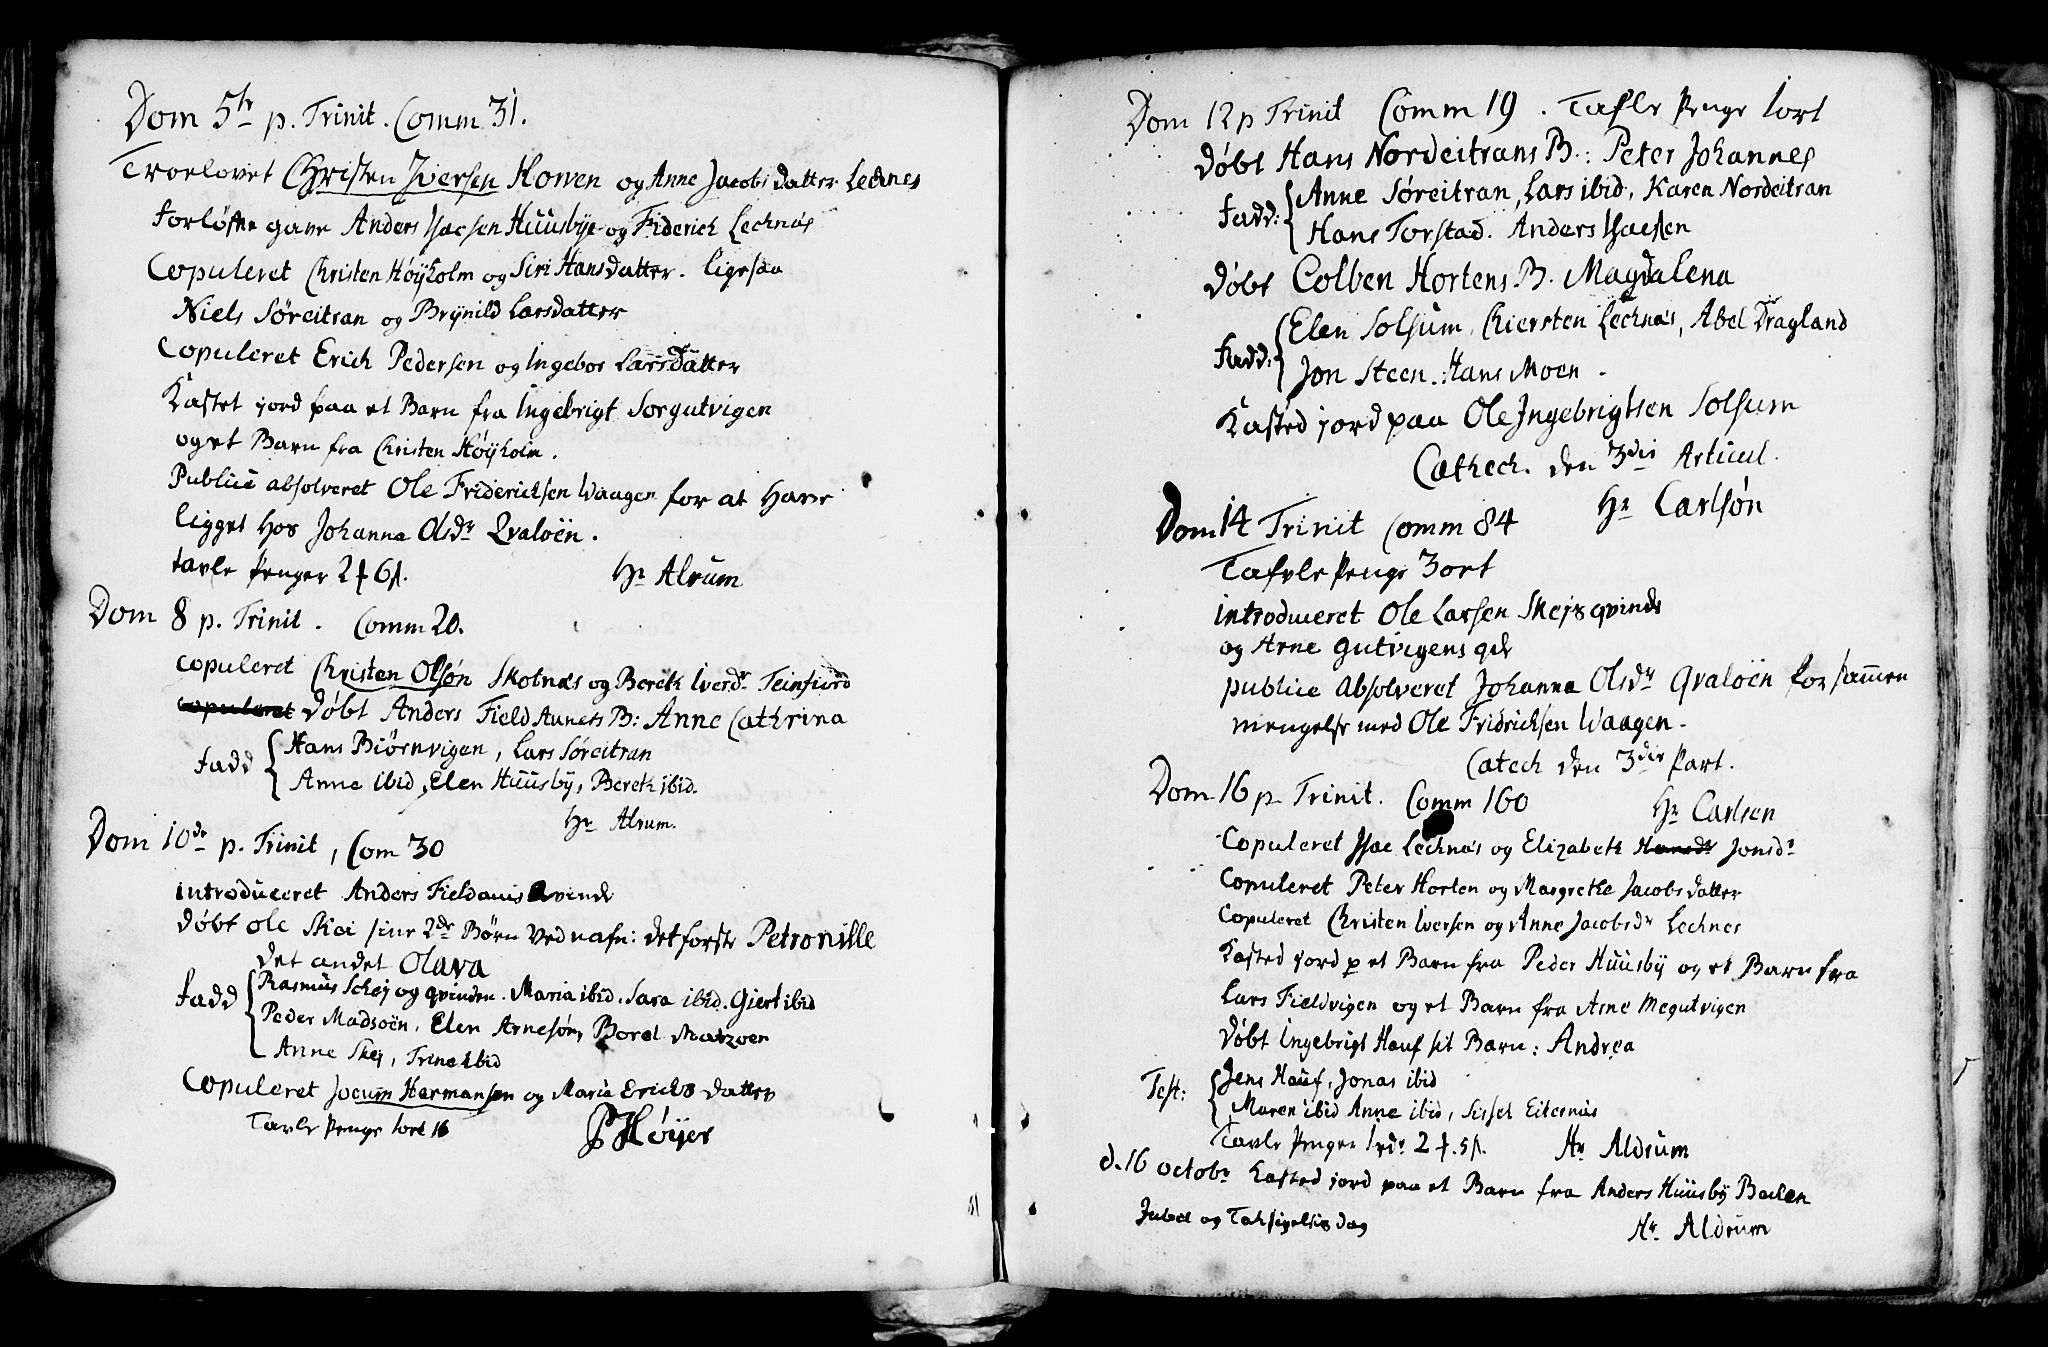 Dom 5te p. Trinit. Comm 31.
Troelovet Christen Iversen Howen og Anne Jacobsdatter Lechnes
forløfne gave Anders Isacsen Huusbye og Friderich Lechnæs
Copuleret Christen Høyholm og Siri Hansdatter. ligesaa
Niels Søreitran og Brynild Larsdatter
Copuleret Erich Pedersen og Ingebor Larsdatter
Kastet jord paa et Barn fra Ingebrigt Sorgutvigen
og et Barn fra Christen Høyholm.
Publice absolveret Ole Friderichsen Waagen for at have
ligget hos Johanna Olsdr Qvaløen.
tavle Penger 2 ƒ 6 ſ. Hr Alrum
Dom 8 p. Trinit. Comm 20.
copuleret Christen Olsøn Skotnæs og Bereth Iverdr Teinfiord
copuleret Døbt Anders Field Aunets B: Anne Cathrina
Fadd { Hans Biørnvigen, Lars Søreitran
Anne ibid, Elen Huusby, Bereth ibid.
Hr Alrum.
Dom 10de p. Trinit, Com 30
introduceret Anders Fieldaunis Qvinde
Døbt ole Skei sine 2de Børn ved nafn: det forste Petronille
det andet Olava
Fadd { Rasmus Schej og qvinden. Maria ibid. Sara ibid. Giert ibid
Peder Madsoën, Elen Arnesøn, Borel Matzoen
Anne Skej, Trine ibid
Copuleret Jocum Hermansen og Maria Erichs datter
Tavle Penge 1ort 16 P Høyer
Dom 12 p Trinit Comm 19. Tafle Penge 1ort
Døbt Hans Nordeitrans B.: Peter Johannes
Fadd: { Anne Søreitran, Lars ibid, Karen Nordeitran
Hans Torstad. Anders Isacsen
Døbt Colben Hortens B. Magdalena
Fadd: { Elen Solsum, Chiersten Lechnæs, Abel Dragland
Jon Steen. Hans Moen.
Kasted jord paa Ole Ingebrigtsen Solsum
Cathech. den 3die Articul.
Hr Carlsøn
Dom 14 Trinit Comm 84
Tafvle Penge 3ort
introduceret Ole Larsen Skejs qvinde
og Arne Gutvigens qde
publice absolveret Johanna Olsdr Qvaløen for sammen
mengelse med Ole Fridrichsen Waagen.
Catech den 3die Part.
Dom 16 p. Trinit. Comm 160 Hr Carlsen
Copuleret Isac Lechnæs og Elizabeth Hansdr Jonsdr
Copuleret Peter Horten og Margrethe Jacobsdatter
Copuleret Christen Iversen og Anne Jacobsdr Lechnes
Kasted jord p et Barn fra Peder Huusby og et Barn fra
Lars Fieldvigen og et Barn fra Arne Megutvigen
Døbt Ingebrigt Hauf sit Barn: Andrea
Test: { Jens Hauf, Jonas ibid
Maren ibid Anne ibid, Sissel Eiternæs
Tavle Penger 1rdr 2 ƒ. 5 ſ. Hr Aldrum
d. 16 octobr Kasted jord paa et Barn fra Anders Huusby
Jubel og Taksigelsis dag
Hr Aldrum